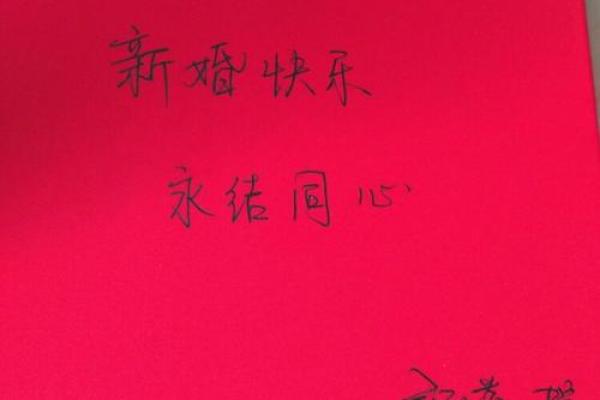 新婚快乐
永结同心